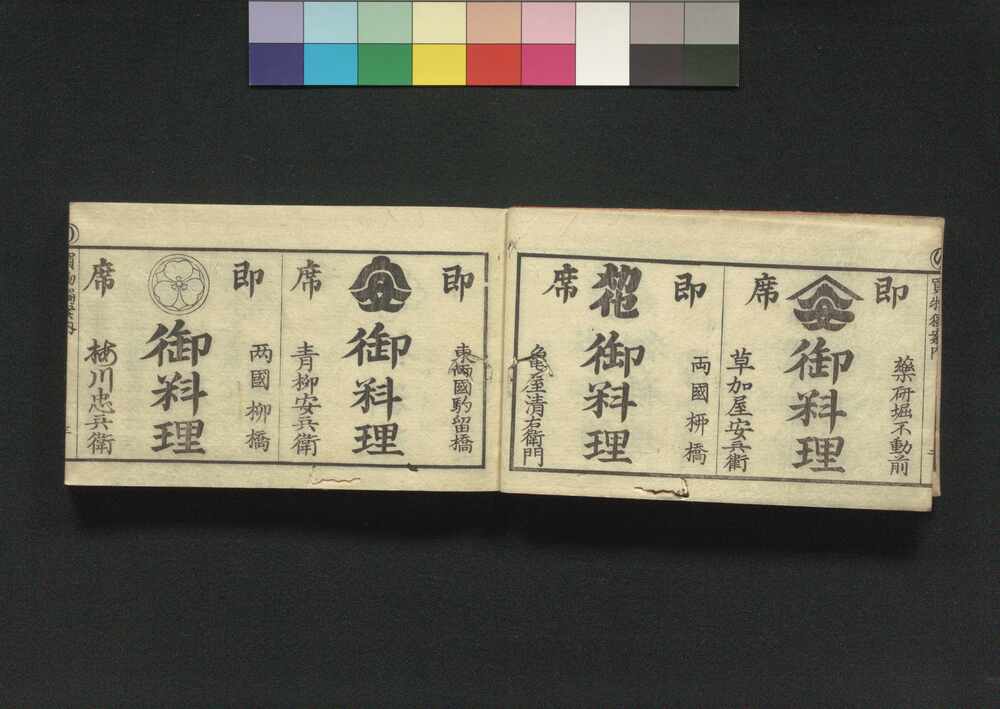 買物獨案内
二
即席
藥研堀不動前
御料理
草加屋安兵衛
即席
両國柳橋
花
御料理
亀屋清右衛門
即席
東両國駒留橋
御料理
青柳安兵衛
即席
两國柳橋
御料理
梅川忠兵衛
三